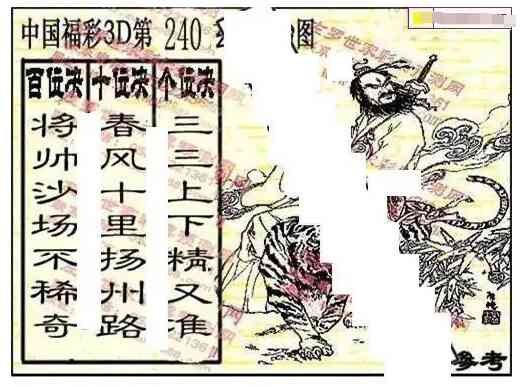 中国福彩3D第 240 图
百位决 十位决 个位决
将帅沙场不稀奇
春风十里扬州路
三三上下精又准
参考